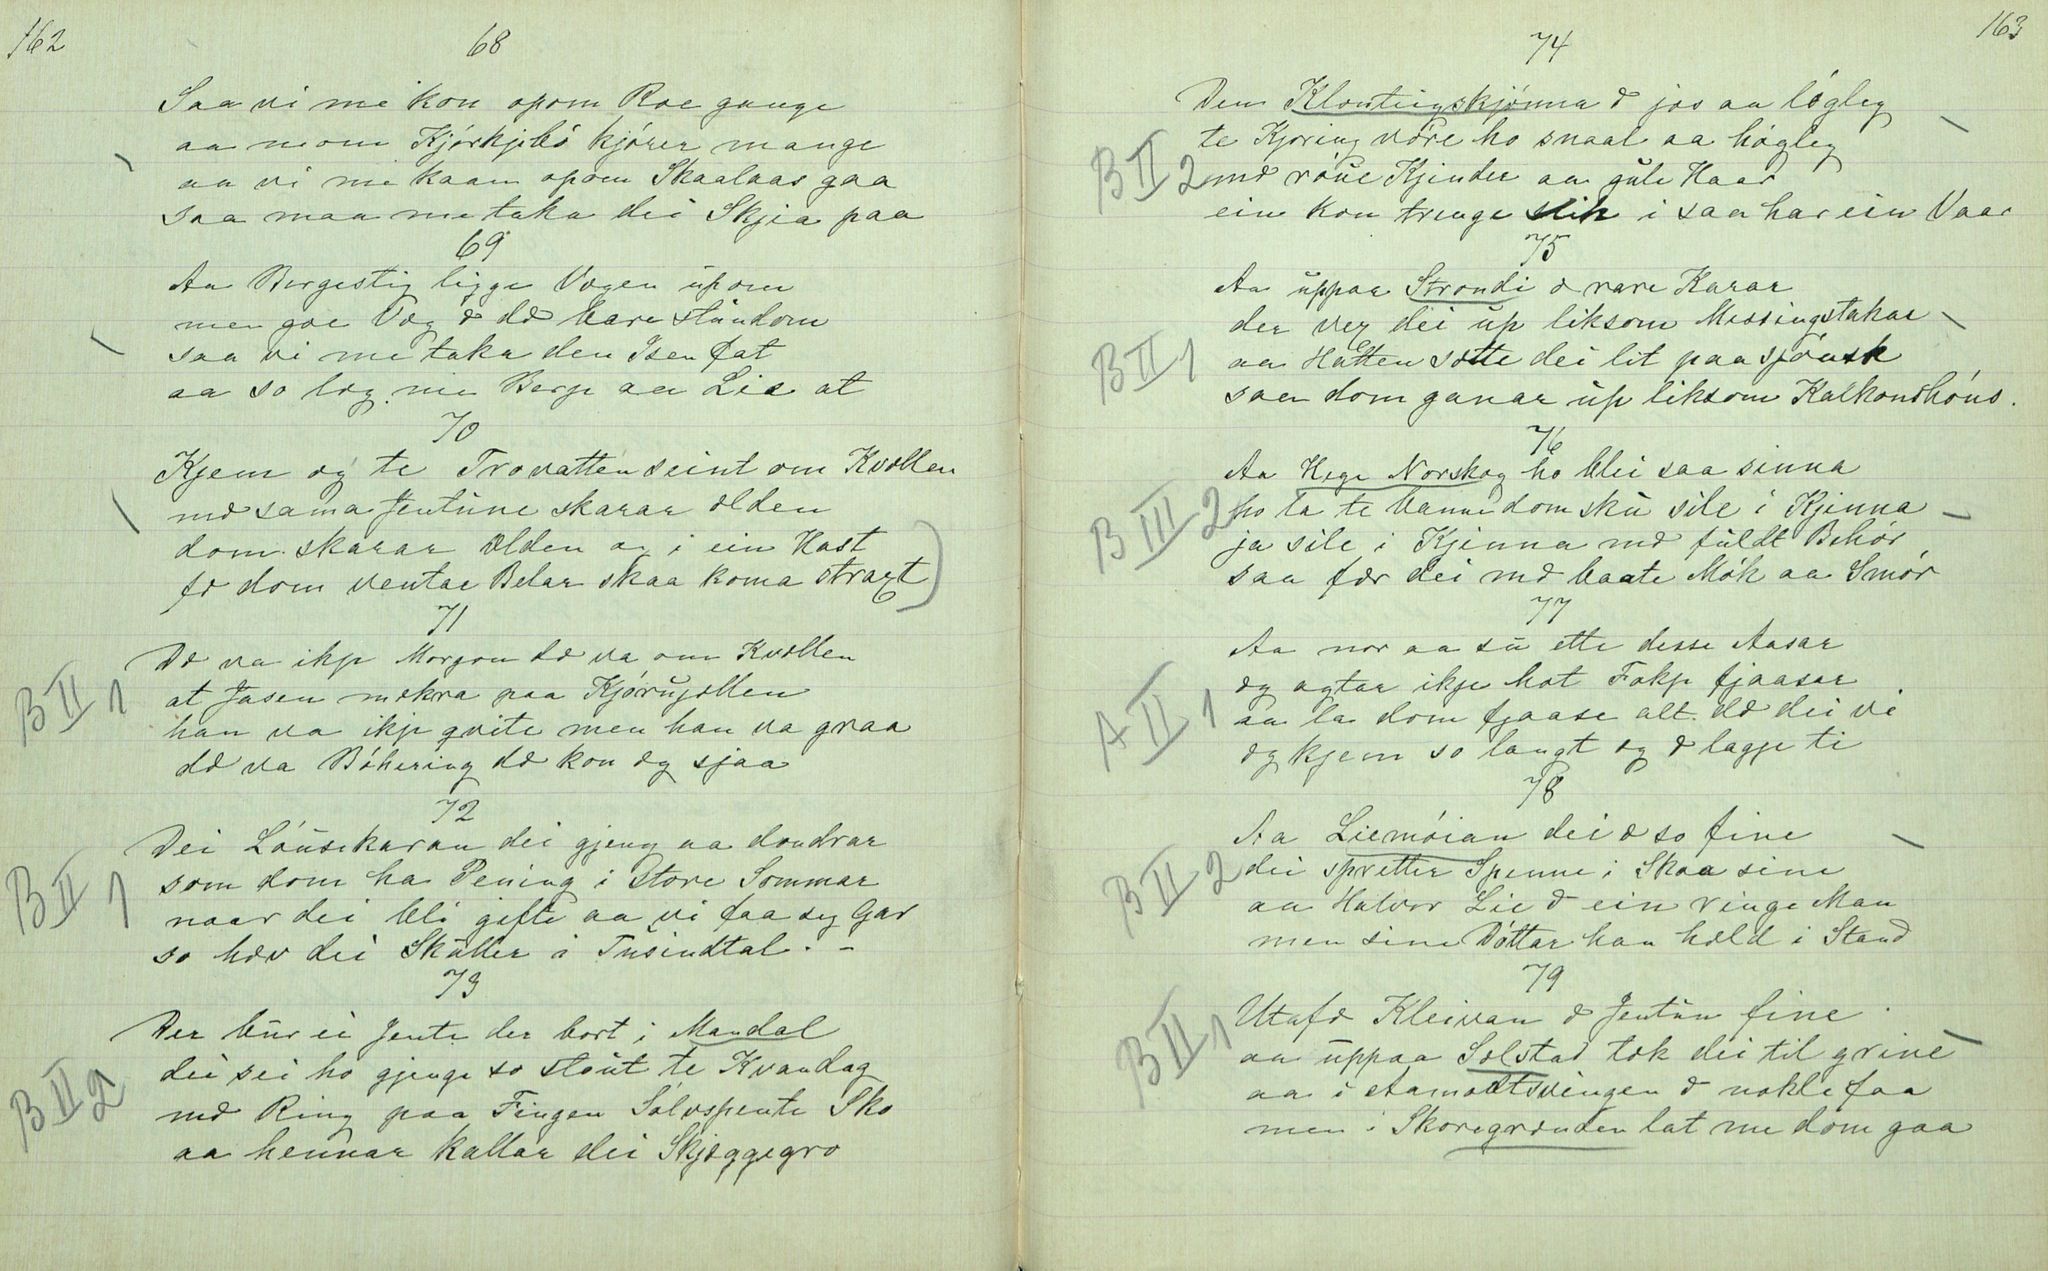 162
68
Saa vi me kon opom Roe gange
aa neom Kjórkjibó kjórer mange
aa vi me kaam opom Skaalaas gaa
saa maa me taka dei Skjia paa
69
Aa Bergestig ligge Vægen upom
men goe Væg æ dæ bare stündom
saa vi me taka den Isen fat
aa so læg me Berje aa Lie at
70
Kjem eg te Trovatten seint om Kvællen
mæ sama Jentüne skarar ælden
dom skarar ælden og i ein Hast
fe dom ventar Belar skaa koma straxt
71
Dæ va ikje Morgon dæ va om Kvællen
B II 1
at Jasen mekra paa Kjórüjællen
han va ikje qvite men han va graa
dæ va Bóhering dæ kon eg sjaa
72
Dei Lóusekaran dei gjeng aa dondrar
B II 1
som dom ha Pening i store Sommar
naar dei bli gifte aa vi faa seg Gar
so hæv dei Skuller i Tusindtal. -
73
Der bür ei Jente der bort i Mandal
B II 2
dei sei ho gjenge so stoüt te Kvandag
mæ Ring paa Fingen Sólvspente Sko
aa hennar kallar dei Skjæggegro
163
74
Dem Klonteigskjónna æ jos aa lógleg
B II 2
te Kjoring vóre ho snaal aa hógleg
mæ róüe Kjinder aa güle Haar
ein kon trenge slik i saa har ein Vaar
75
Aa üppaa Strondi æ rare Karar
der vex dei up liksom Messingstakar
B II 1
aa Hatten sætte dei lit paa sjóusk
saa dom ganar üp liksom Kalkonshóns.
76
Aa Hege Norskog ho blei saa sinna
B III 2
ho ta te banne dom skü sile i Kjinna
ja sile i Kjinna mæ füldt Behór
saa fær dei mæ baate Mók aa Smór
77
Aa nor aa sü ette desse Aasar
eg agtar ikje hot Fokje fjaasar
A II 1
aa la dom fjaase alt dæ dei vi
eg kjem so langt eg æ lagje ti
78
Aa Liemóian dei æ so fine
B II 2
dei spretter Spenne i Skoa sine
aa Halvor Lie æ ein ringe Man
men sine Dóttar han hæld i Stand
79
Utafæ Kleivan æ Jentün fine
B II 1
aa üppaa Solstad tok dei til grine
aa i Aamodtsvingen æ nokle faa
men i Skoregrænden lat me dom gaa